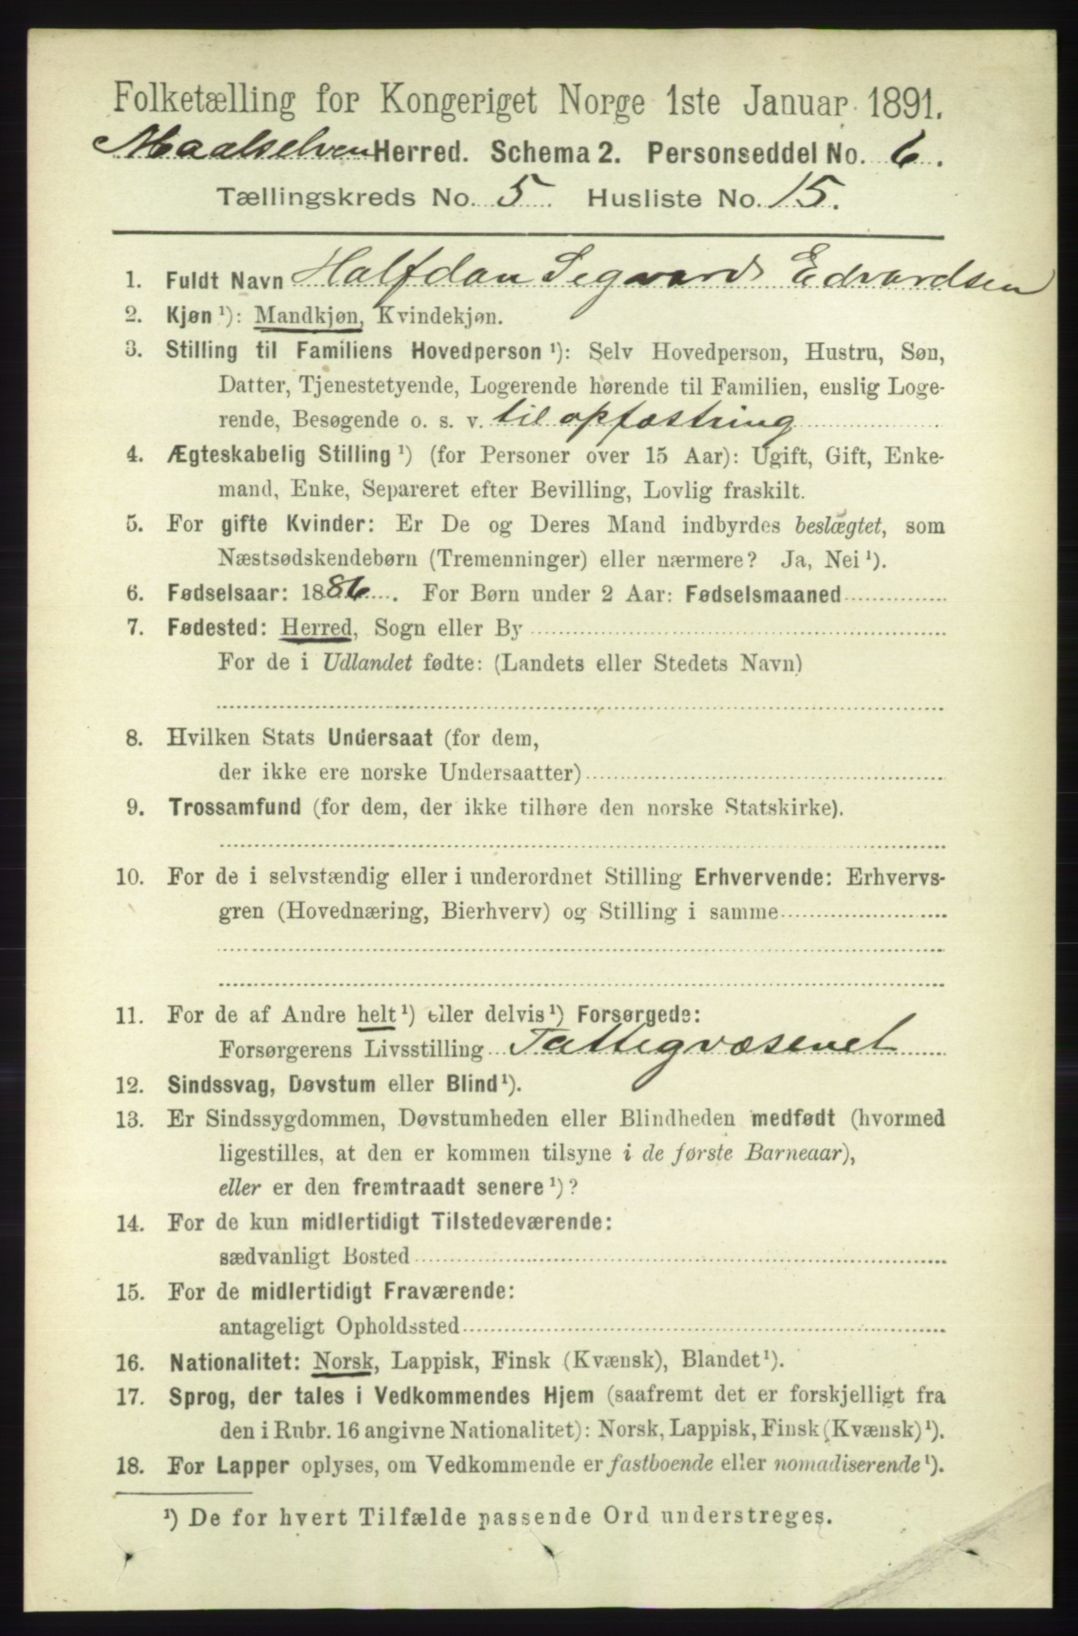 Folketælling for Kongeriget Norge 1ste Januar 1891.
Maalselven Herred. Schema 2. Personseddel No. 6.
Tællingskreds No. 5. Husliste No. 15.
1. Fuldt Navn Halfdan Segvard Edvardsen
2. Kjøn ¹): Mandkjøn, Kvindekjøn.
3. Stilling til Familiens Hovedperson ¹): Selv Hovedperson, Hustru, Søn,
Datter, Tjenestetyende, Logerende hørende til Familien, enslig Loge-
rende, Besøgende o. s. v. til opfostring
4. Ægteskabelig Stilling ¹) (for Personer over 15 Aar): Ugift, Gift, Enke-
mand, Enke, Separeret efter Bevilling, Lovlig fraskilt.
5. For gifte Kvinder: Er De og Deres Mand indbyrdes beslægtet, som
Næstsødskendebørn (Tremenninger) eller nærmere? Ja, Nei ¹).
6. Fødselsaar: 1886. For Børn under 2 Aar: Fødselsmaaned
7. Fødested: Herred, Sogn eller By
For de i Udlandet fødte: (Landets eller Stedets Navn)
8. Hvilken Stats Undersaat (for dem,
der ikke ere norske Undersaatter)
9. Trossamfund (for dem, der ikke tilhøre den norske Statskirke).
10. For de i selvstændig eller i underordnet Stilling Erhvervende: Erhvervs-
gren (Hovednæring, Bierhverv) og Stilling i samme
11. For de af Andre helt ¹) eller delvis ¹) Forsørgede:
Forsørgerens Livsstilling Fattigvæsenet
12. Sindssvag, Døvstum eller Blind ¹).
13. Er Sindssygdommen, Døvstumheden eller Blindheden medfødt (hvormed
ligestilles, at den er kommen tilsyne i de første Barneaar),
eller er den fremtraadt senere ¹)?
14. For de kun midlertidigt Tilstedeværende:
sædvanligt Bosted
15. For de midlertidigt Fraværende:
antageligt Opholdssted
16. Nationalitet: Norsk, Lappisk, Finsk (Kvænsk), Blandet ¹).
17. Sprog, der tales i Vedkommendes Hjem (saafremt det er forskjelligt fra
den i Rubr. 16 angivne Nationalitet): Norsk, Lappisk, Finsk (Kvænsk) ¹).
18. For Lapper oplyses, om Vedkommende er fastboende eller nomadiserende ¹).
¹) De for hvert Tilfælde passende Ord understreges.